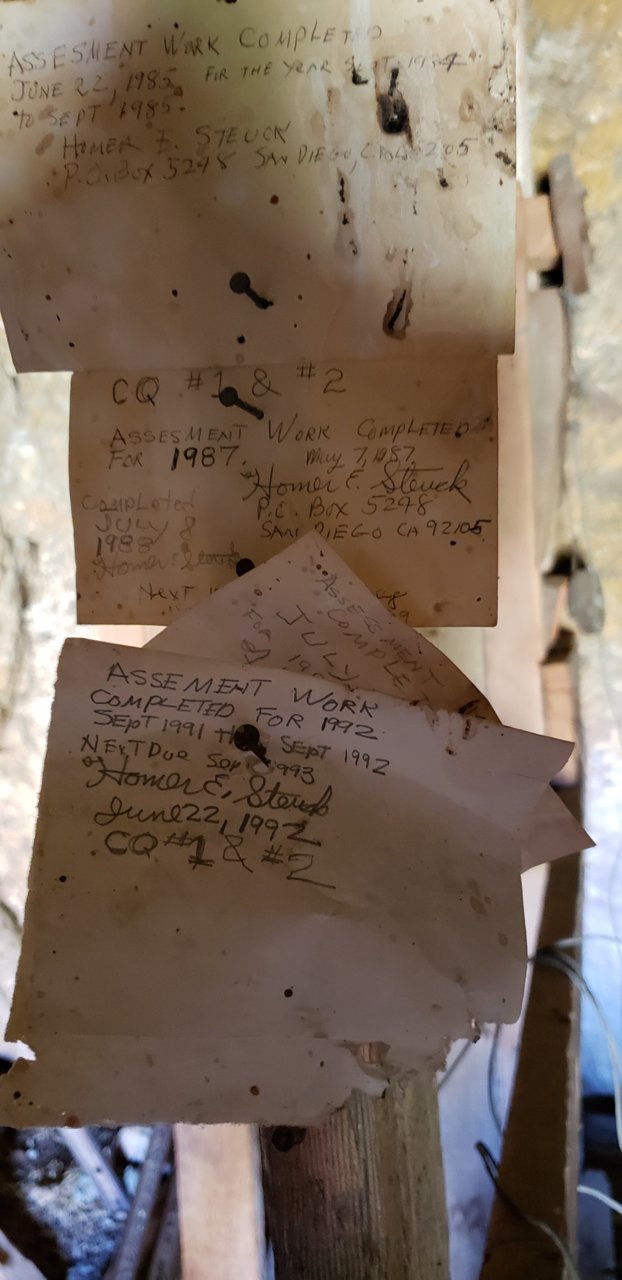 ASSESMENT WORK COMPLETED
JUNE 22, 1985 FOR THE YEAR SEPT. 1984
TO SEPT 1985.
HOMER E. STEUCK
P.O. BOX 5248 SAN DIEGO, CA
CQ #1 & #2
ASSESMENT WORK COMPLETED
FOR 1987. May 7, 1987
Homer E. Steuck
P.O. BOX 5248
SAN DIEGO CA 92105
COMPLETED
JULY 8
1988
Homer E. Steuck
NEXT
ASSESSMENT
COMPLET
FOR
JULY
8 19
ASSEMENT WORK
COMPLETED FOR 1992
SEPT 1991 SEPT 1992
NEXT DUE Sep 1993
Homer E. Steuck
June 22, 1992
CQ #1 & #2